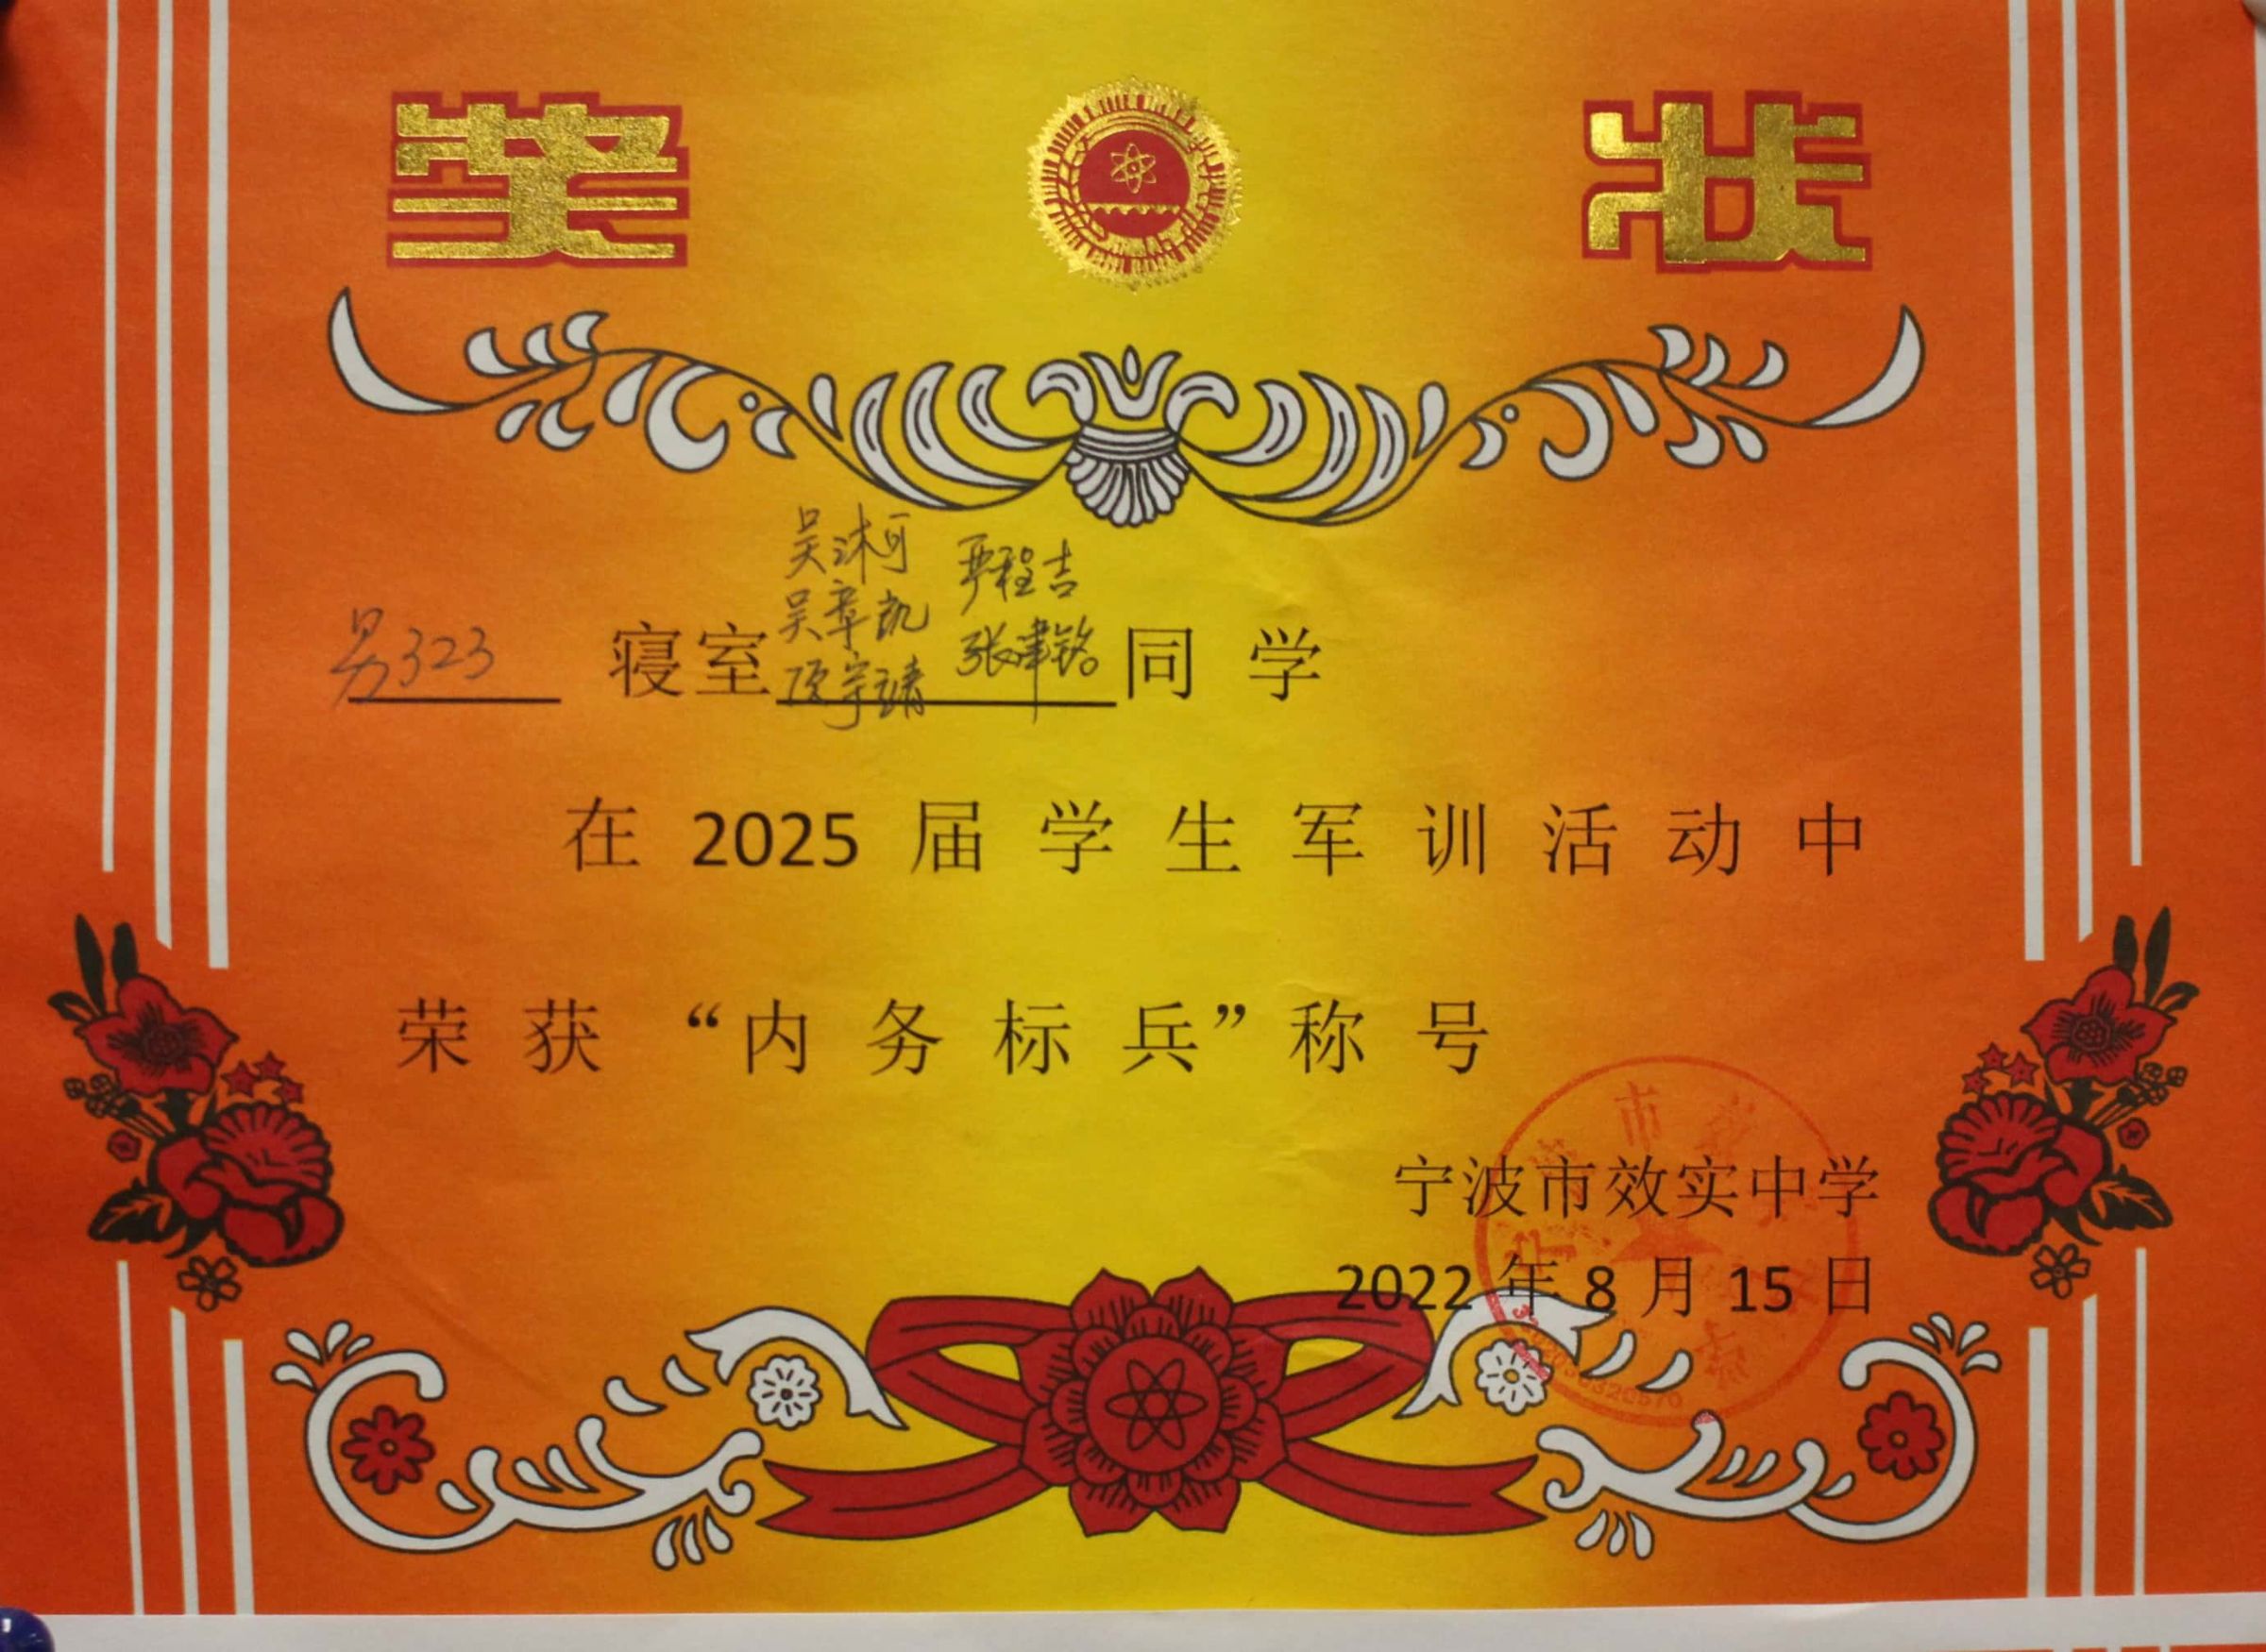 奖 状
吴沐可 严程吉
吴章凯 张津铭
项宇靖
男323 寝室 同学
在 2025 届学生军训活动中
荣获“内务标兵”称号
宁波市效实中学
2022 年 8 月 15 日